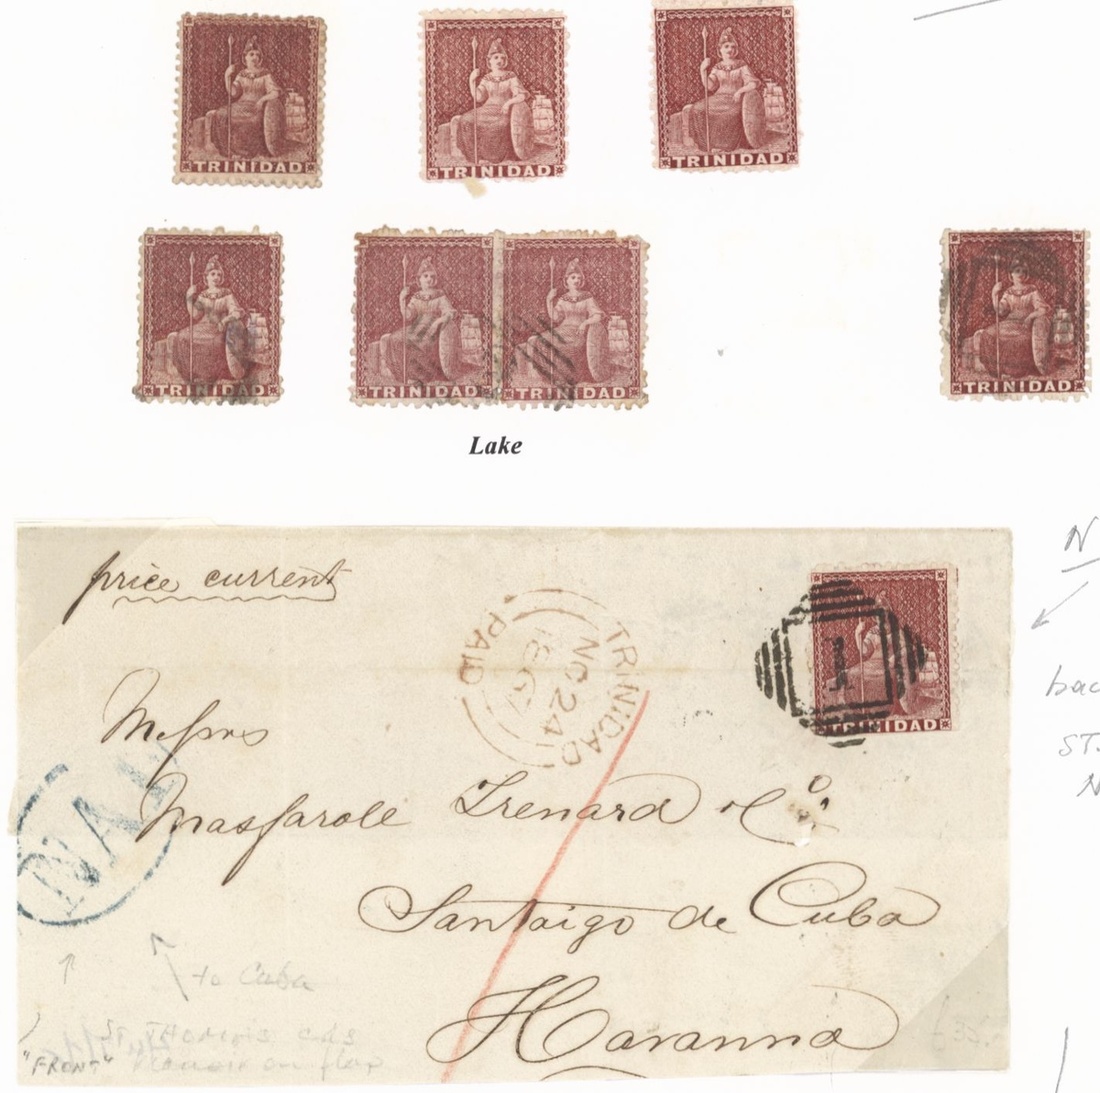 TRINIDAD
TRINIDAD
TRINIDAD
TRINIDAD
TRINIDAD TRINIDAD
TRINIDAD
Lake
price current
TRINIDAD
NO 24
186
PAID
1
TRINIDAD
N
bac
ST.
N
Messrs
Massarole Trenard & Co.
NA1
Santaigo de Cuba
to Cuba
Havanna
ST THOMAS cds
"FRONT" on flap